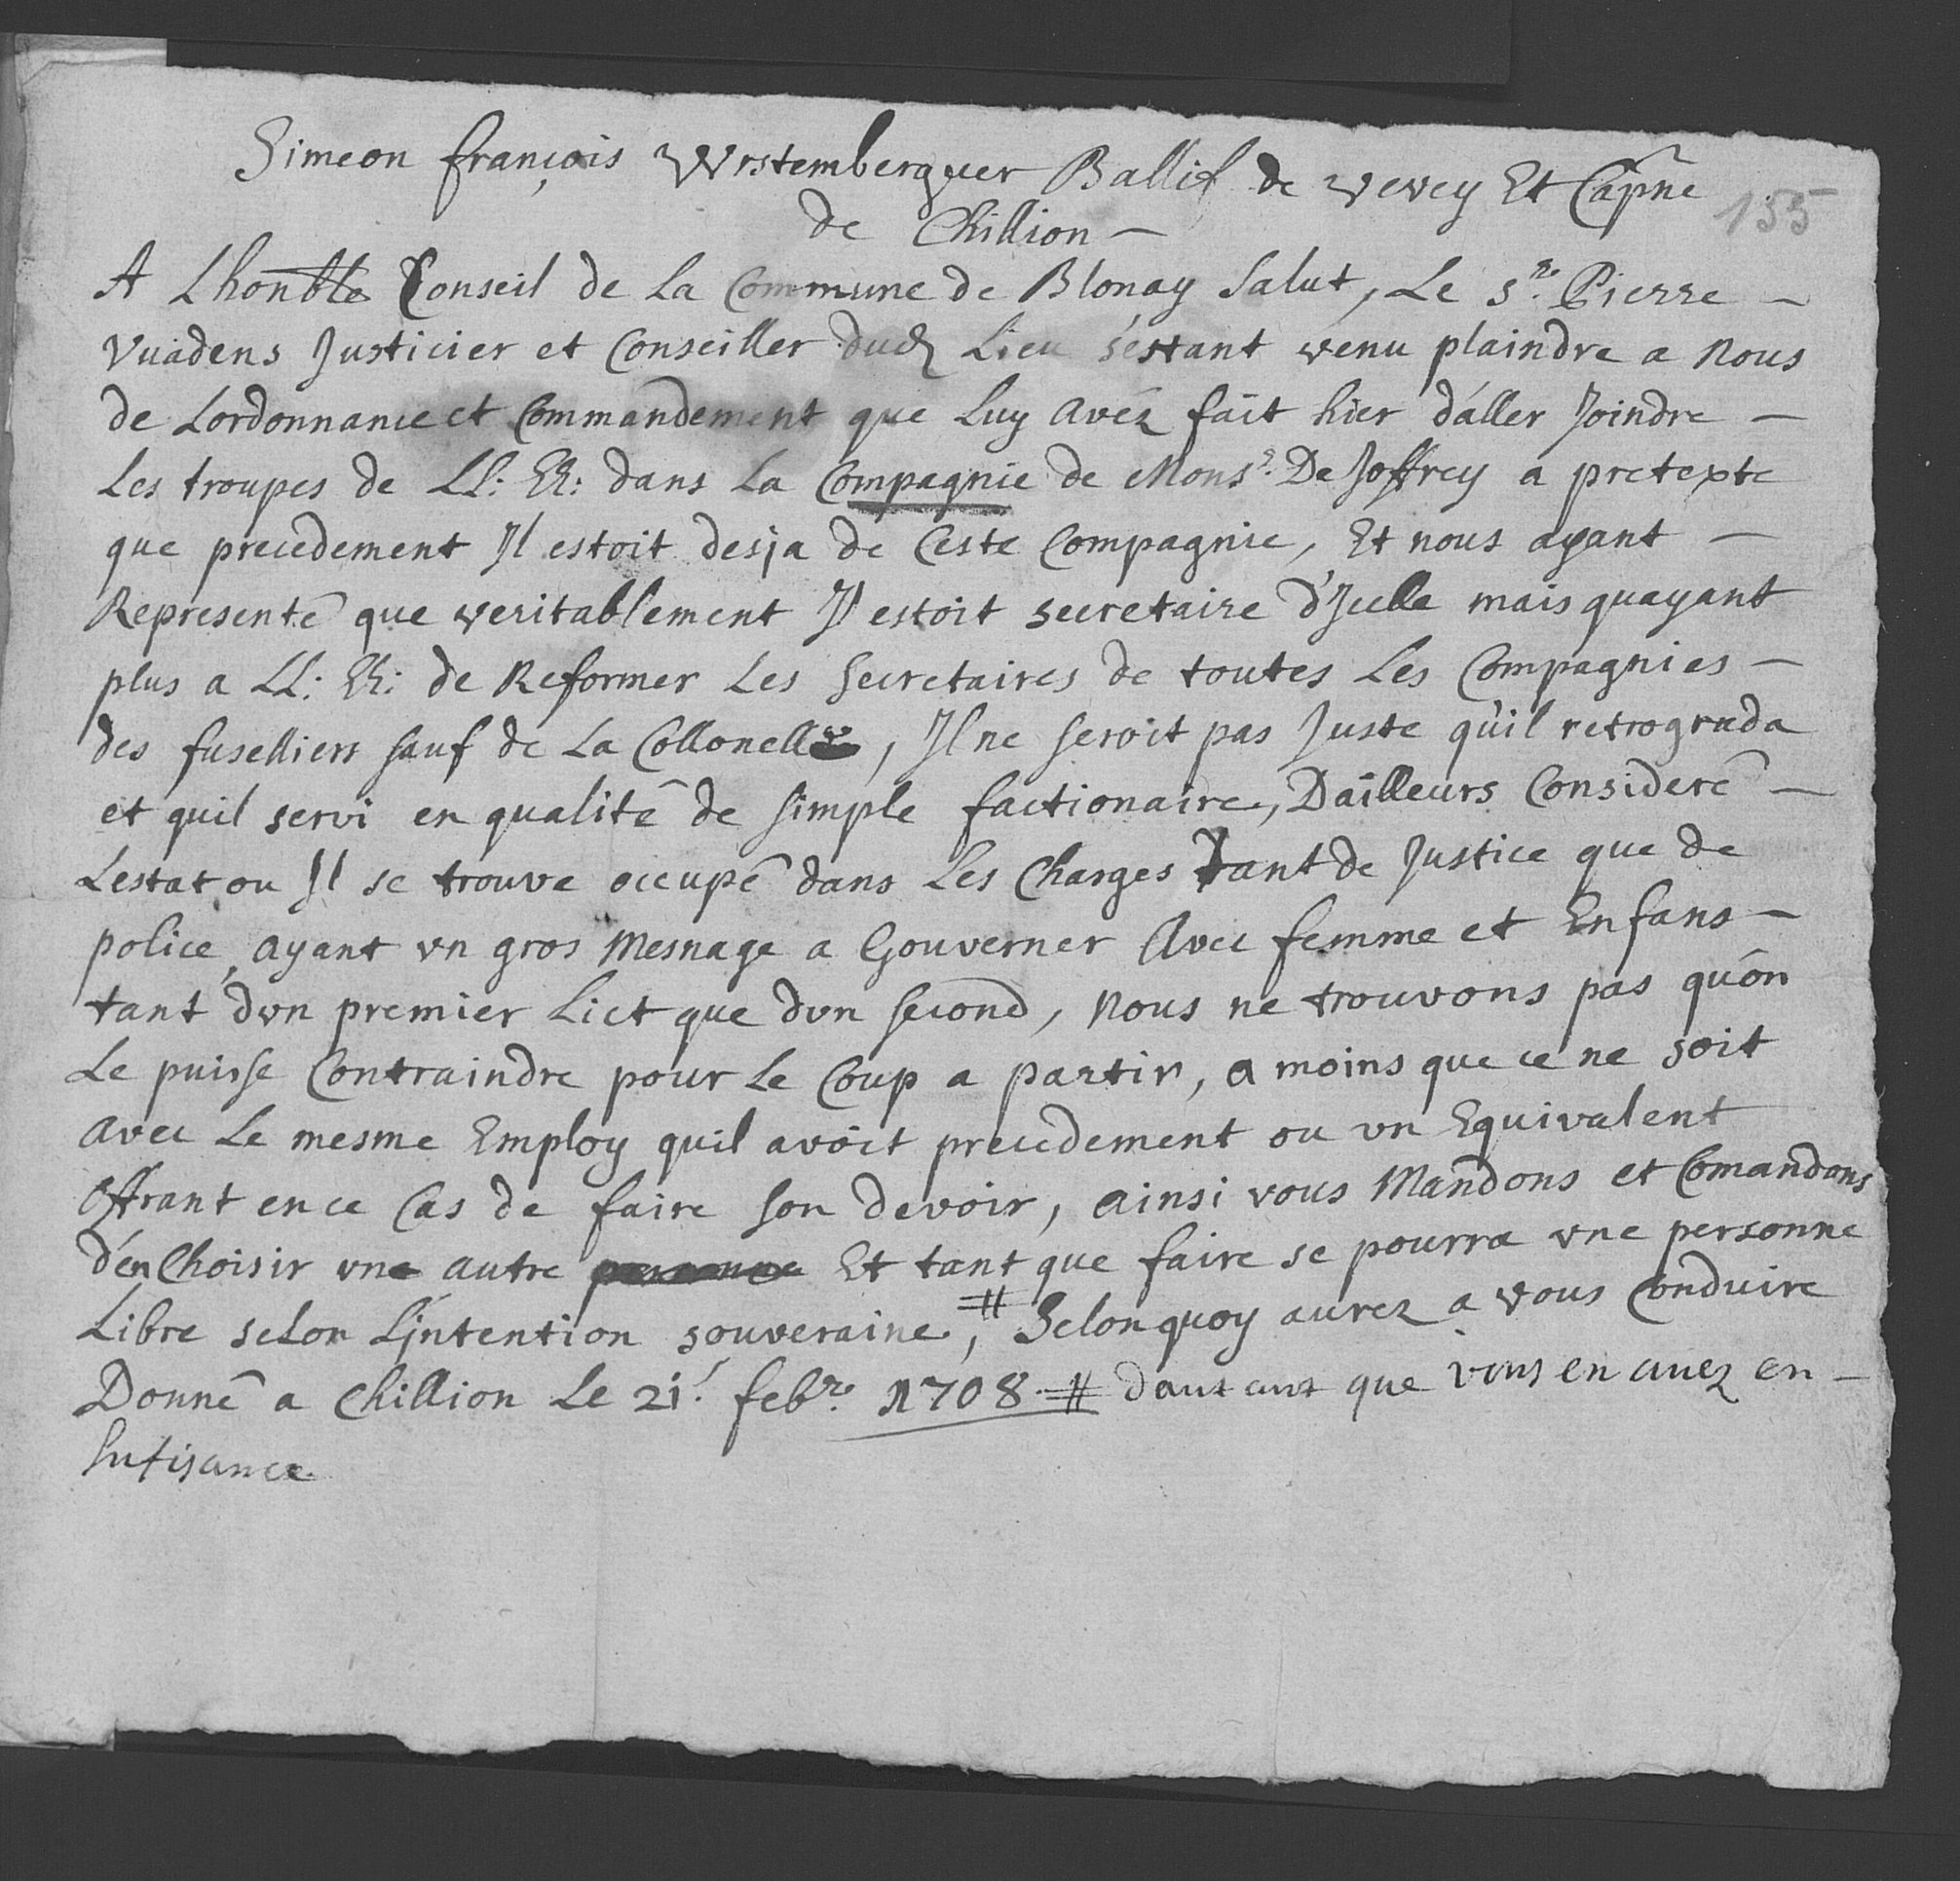 Simeon françois Wrstemberguer Ballif de vevey Et Capne
155
de Chillion -
A Lhonble Conseil de La Commune de Blonay Salut, Le Sr. Pierre -
Vuadens Justicier et Conseiller dud Lieu s'estant venu plaindre a Nous
de Lordonnance et Commandement que Luy avéz fait hier d'aller Joindre -
Les troupes de LL: EE: dans La Compagnie de Monsr. De Joffrey a pretexte
que precedement Jl estoit desja de Ceste Compagnie, Et nous ayant -
Representé que veritablement Jl estoit secretaire d'Jcelle mais quayant
plus a LL: EE: de Reformer Les Secretaires de toutes Les Compagnies -
des fuselliers sauf de La Collonelle, Jl ne seroit pas Juste qu'il retrograda
et quil servi en qualité de simple factionaire, Dailleurs Consideré -
Lestat ou Jl se trouve occupé dans Les Charges tant de Justice que de
police, ayant vn gros Mesnage a Gouverner Avec femme et Enfans -
tant dvn premier Lict que dvn second, Nous ne trouvons pas qu'on
Le puisse Contraindre pour Le Coup a partir, a moins que ce ne soit
Avec Le mesme Employ quil avoit precedement ou vn Equivalent
Offrant en ce Cas de faire son devoir, ainsi vous Mandons et Comandons
d'en Choisir vne autre personne Et tant que faire se pourra vne personne
Libre selon L'jntention souveraine, # Selon quoy aurez a vous Conduire
Donné a Chillion Le 21. febr. 1708. # dautant que vous en avez en -
Sufisance